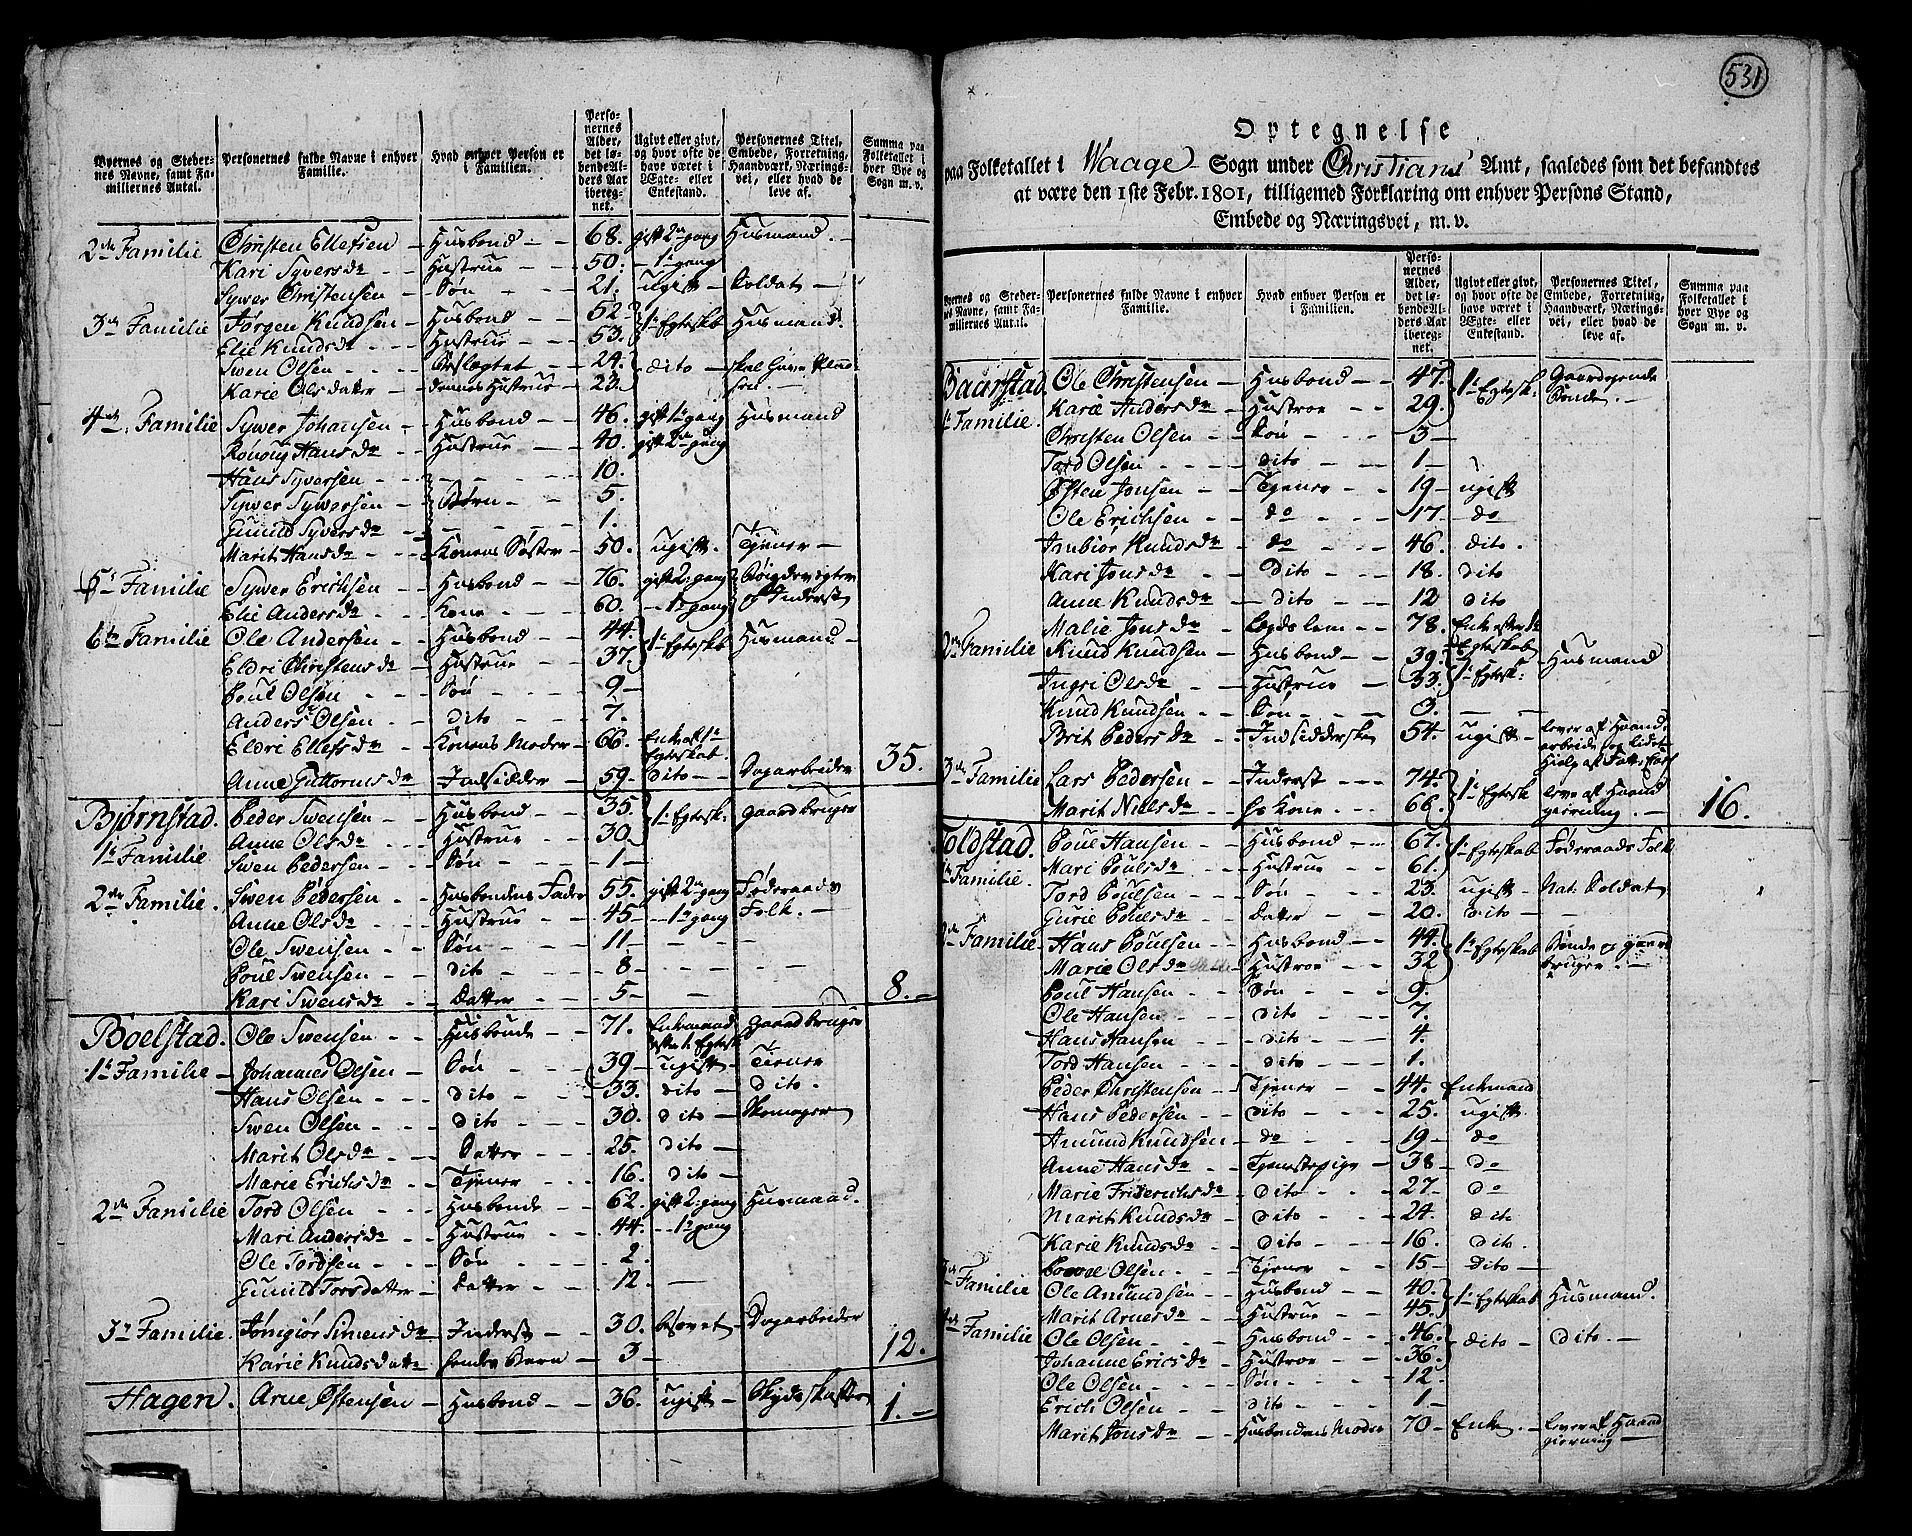 Byernes og Steder-
nes Navne, samt Fa-
miliernes Antal.
Personernes fulde Navne i enhver
Familie.
Hvad enhver Person er
i Familien.
Perso-
nernes
Alder,
det lø-
bende Al-
ders Aar
ibereg-
net.
Ugivt eller givt,
og hvor ofte de
have været i
Ægte- eller
Enkestand.
Personernes Titel,
Embede, Forretning,
Haandværk, Nærings-
vei, eller hvad de
leve af.
Summa paa
Folketallet i
hver Bye og
Sogn m. v.
2de Familie Christen Ellefsen Husbond 68. gift 2n gang Husmand.
Kari Syversdr Hustrue 50. 1ste gang
Sywer Christensen Søn 21. ugift Soldat
3de Familie Jørgen Knudsen Husbond 52 1te Egteskb Husmand.
Elie Knudsdr Hustrue 53.
Swen Olsen Beslægtet 24. dito
Karie Olsdatter dennes Hustrue 23.
4de Familie Sywer Johansen Husbond 46. gift 1te gang Husmand
Rønnug Hansdr Hustrue 40. gift 2n gang
Hans Syversen 10.
Sywer Sywersen Børn 5.
Gunild Syversdr 1.
Marit Hansdr Konens Søster 50. ugift. Tjener
5te Familie Sywer Erichsen Husbond 76. gift 2. gang
Elie Andersdr Kone 60. 1te gang Inderst
6te Familie Ole Andersen Husbond 44. 1te Egteskb Husmand
Eldri Christensdr Hustrue 37.
Poul Olsen Søn 9
Anders Olsen dito 7.
Eldri Ellefsdr Konens Moder 66. Enke af 1te Egteskab.
Anne Guttormsdr Indsidder 59. dito Dagarbeider 35.
Bjørnstad. Peder Swensen Husbond 35. 1te Egtesk: gaardbruger
1te Familie Anne Olsdr Hustrue 30.
Swen Pedersen Søn 1
2de Familie. Swen Pedersen Husbondens Fader 55. gift 2n gang Føderaads
Anne Olsdr Hustrue 45 1te gang Folk.
Ole Swensen Søn 11
Poul Swensen dito 8
Kari Swensdr Datter 5 8.
Boelstad. Ole Swensen Husbonde 71. Enkemand gaardbruger
efter 1. Egtesk
1te Familie Johannes Olsen Søn 39 ugift Tiener
Hans Olsen dito 33. dito dito.
Swen Olsen dito 30. dito Skomager
Marit Olsdr Datter 25. dito
Marie Erichsdr Tjener 16. dito
2de Familie Tord Olsen Husbonde 62. gift 2. gang Husmand.
Mari Andersdr Hustrue 44. 1te gang
Ole Tordsen Søn 2
Gunild Torsdatter Datter 12.
3de Familie. Simensdr Inderst 30. besovet Dagarbeider
Karie Knudsdatter hendes Barn 3 12.
Hagen. Arne Østensen Husbond 36. ugift 1.
531
Optegnelse
paa Folketallet i Waage Sogn under Christians Amt, saaledes som det befandtes
at være den 1ste Febr. 1801, tilligemed Forklaring om enhver Persons Stand,
Embede og Næringsvei, m. v.
Byernes og Steder-
nes Navne, samt Fa-
miliernes Antal.
Personernes fulde Navne i enhver
Familie.
Hvad enhver Person er
i Familien.
Perso-
nernes
Alder,
det lø-
bende Al-
ders Aar
ibereg-
net.
Ugivt eller givt,
og hvor ofte de
have været i
Ægte- eller
Enkestand.
Personernes Titel,
Embede, Forretning,
Haandværk, Nærings-
vei, eller hvad de
leve af.
Summa paa
Folketallet i
hver Bye og
Sogn m. v.
Baarstad. Ole Christensen Husbond 47. 1te Egtesk: Gaardegende
1te Familie. Karie Andersdr Hustroe 29. Bonde.
Christen Olsen Søn 3
Tord Olsen dito 1
Østen Jonsen Tjener 19 ugift
Ole Erichsen do 17. do
Imbiør Knudsdr do 46. dito.
Kari Jonsdr dito 18. dito
Anne Knudsdr dito 12 dito
Malie Jonsdr Legdslem 78. Enke efter 1te Egteskab
2de Familie Knud Knudsen Husbond 39. 1te Egtesk: Husmand
Ingri Olsdr Hustrue 33.
Knud Knudsen Søn 3.
Brit Pedersdr Indsidderske 54. ugift lever af Haand
arbeide og lidet
Hielp af
3de Familie Lars Pedersen Inderst 74. 1te Egtesk leve af Haand
Marit Nielsdr Hs Kone 66. gierning. 16.
Toldstad. Poul Hansen Husbond 67. 1te Egteskab Føderaads Folk
1te Familie. Mari Poulsdr Hustrue 61.
Tord Poulsen Søn 23. ugift Nat. Soldat
Gurie Poulsdr Datter 20. dito
2de Familie Hans Poulsen Husbond 44. 1te Egteskab Bonde og gaard
Marie Olsdr Hustroe 32 bruger.
Poul Hansen Søn 9.
Ole Hansen dito 7.
Hans Hansen dito 4.
Tord Hansen dito 1.
Peder Christensen Tjener 44. Enkemand
Hans Pedersen dito 25. ugift
Amund Knudsen do 19 do
Anne Hansdr Tjenestepige 38 do
Marie Friderichsdr dito 27. do
Marit Knudsdr dito 24. dito
Karie Knudsdr dito 16. dito.
Olsen Tjener 15 dito
3de Familie Ole Amundsen Husbond 40. 1te Egteskab Husmand.
Marit Arnesdr Hustrue 45.
4de Familie Ole Olsen Husbond 46. dito dito.
Johanne Ericsdr Hustroe 36.
Ole Olsen Søn 12.
Erich Olsen dito 1
Marit Jonsdr Husbondens Moder 70 Enke. lever af Haand
gierning